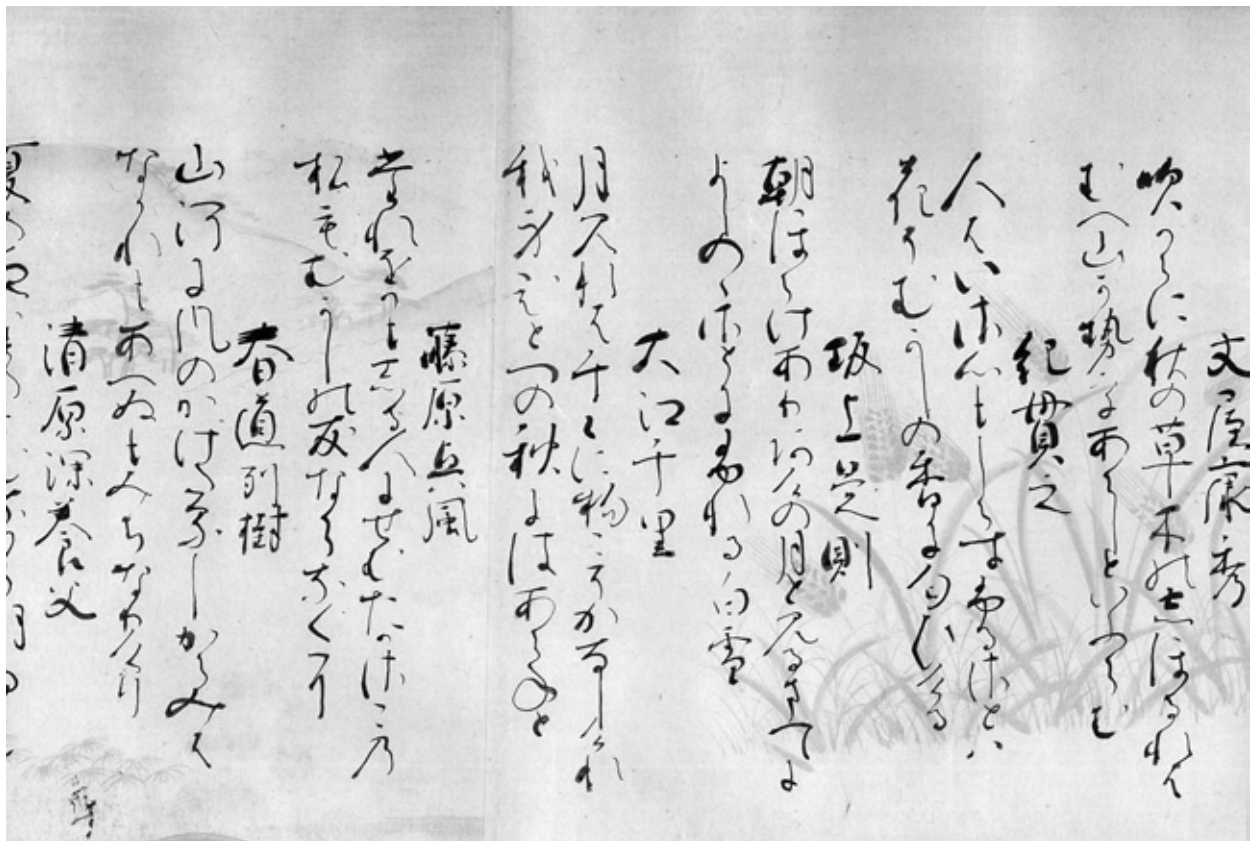 文屋康秀
吹からに秋の草木のしほるれは
むへ山かせをあらしといふらむ
紀貫之
人はいさ心もしらすふるさとは
花そむかしの香に匂ひける
坂上是則
朝ほらけありあけの月と見るまてに
よしのゝさとにふれる白雪
大江千里
月見れは千々に物こそかなしけれ
我身ひとつの秋にはあらねと
藤原興風
たれをかもしる人にせむたかさこの
松もむかしの友ならなくに
春道列樹
山河に風のかけたるしからみは
なかれもあへぬもみちなりけり
清原深養父